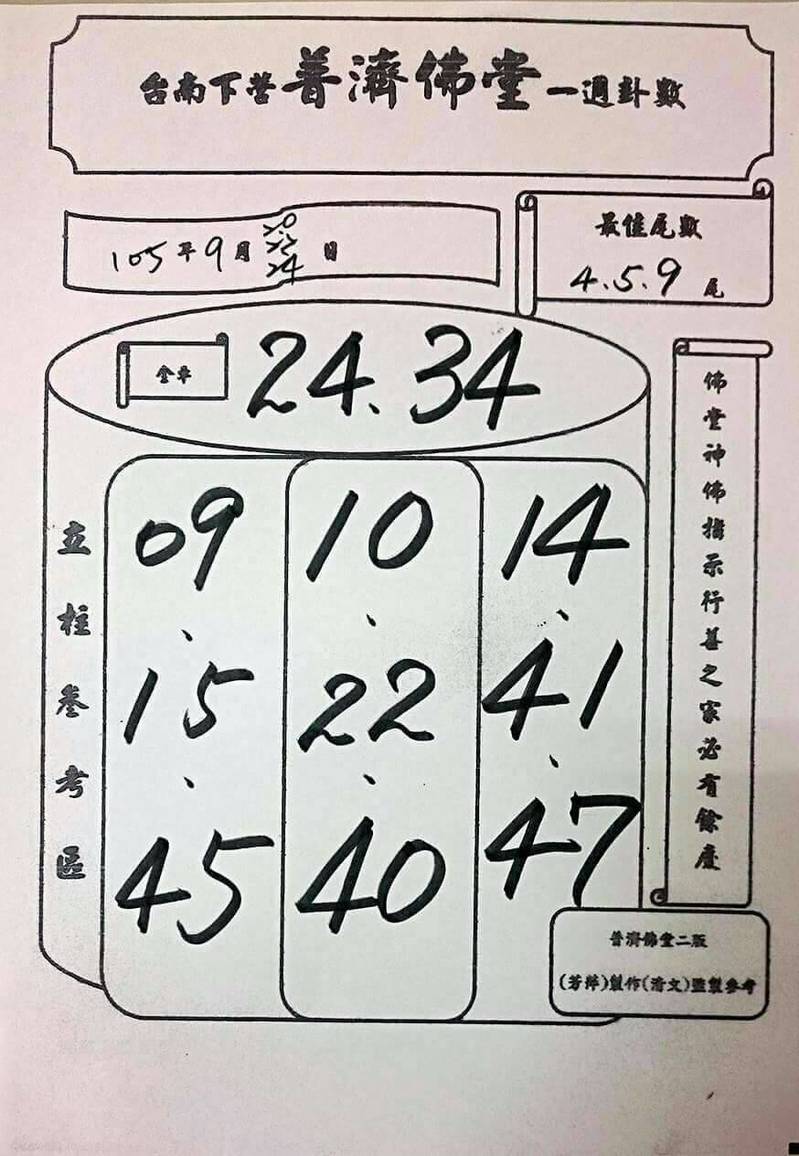 台南下營普濟佛堂一週卦數
105年9月20 22 24日
最佳尾數
4.5.9尾
24、34
09、15、45
10、22、40
14、41、47
立柱叄考區
佛堂神佛指示行善之家必有餘慶
普濟佛堂二版
(芳萍)製作(清文)監製參考